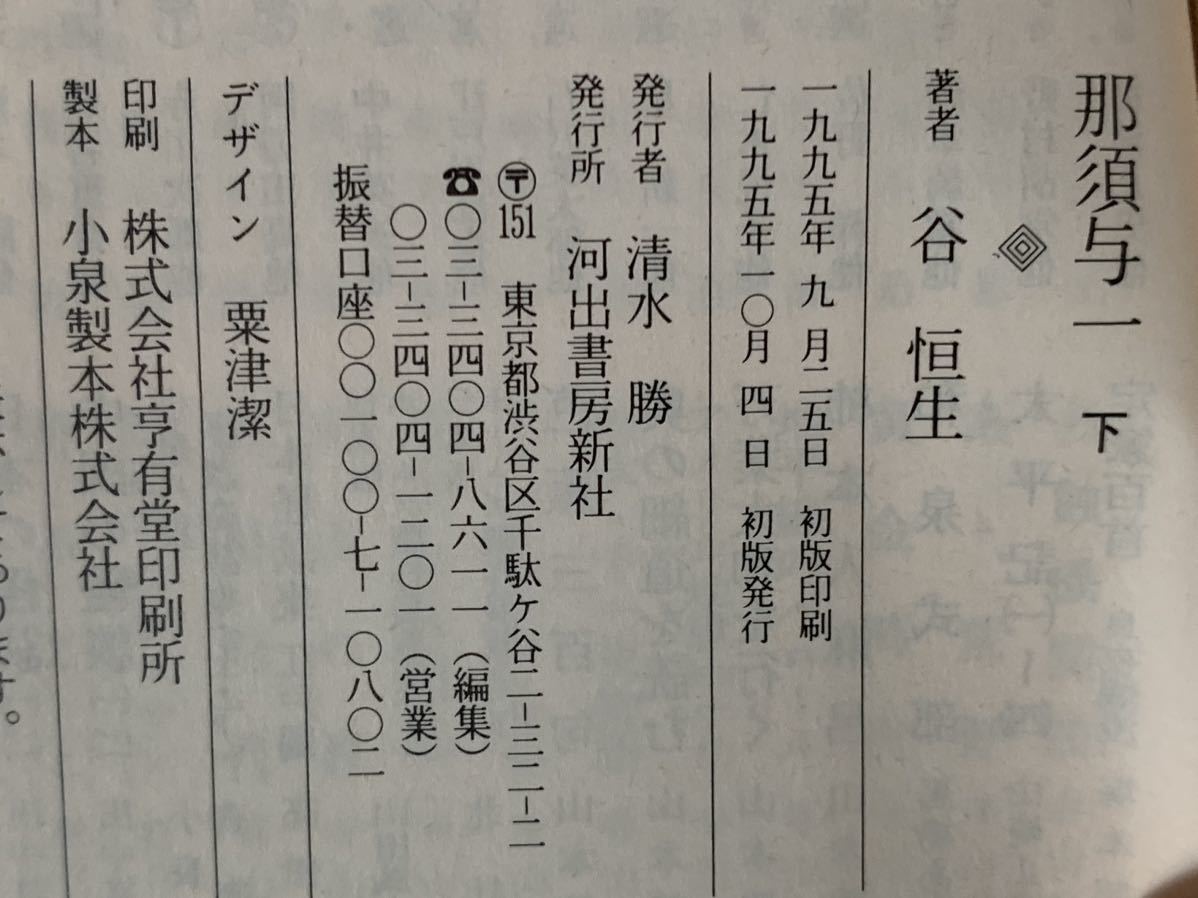 那須与一 下
著者 谷 恒生
一九九五年 九 月二五日 初版印刷
一九九五年一〇月 四 日 初版発行
発行者 清水 勝
発行所 河出書房新社
〒151 東京都渋谷区千駄ケ谷二-三二-二
☎〇三-三四〇四-八六一一（編集）
〇三-三四〇四-一二〇一（営業）
振替口座〇〇一〇〇-七-一〇八〇二
デザイン 粟津潔
印刷 株式会社亨有堂印刷所
製本 小泉製本株式会社
ります。